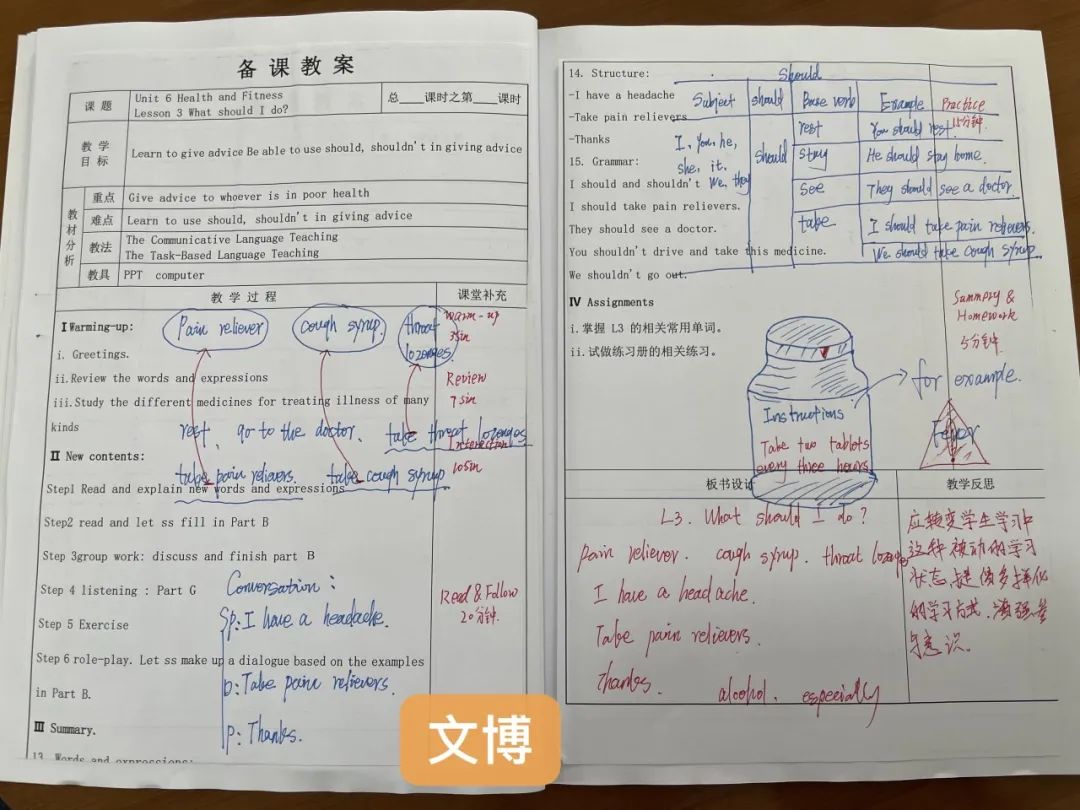 备课教案
课题
Unit 6 Health and Fitness
Lesson 3 What should I do?
总___课时之第___课时
教学目标
Learn to give advice Be able to use should, shouldn't in giving advice
教材分析
重点
Give advice to whoever is in poor health
难点
Learn to use should, shouldn't in giving advice
教法
The Communicative Language Teaching
The Task-Based Language Teaching
教具
PPT computer
教学过程
课堂补充
Ⅰ Warming-up:
Pain reliever
cough syrup
throat lozenges
warm-up
i. Greetings.
ii.Review the words and expressions
Review
iii.Study the different medicines for treating illness of many
kinds
rest, go to the doctor, take throat lozenges
Ⅱ New contents:
take pain relievers. take cough syrup
Step1 Read and explain new words and expressions
Step2 read and let ss fill in Part B
Step 3group work: discuss and finish part B
Step 4 listening : Part G
Conversation:
Read & Follow
20分钟.
Step 5 Exercise
Sp: I have a headache.
Step 6 role-play. Let ss make up a dialogue based on the examples
in Part B.
D: Take pain relievers.
Ⅲ Summary.
p: Thanks.
13. Words and expressions:
14. Structure:
-I have a headache
-Take pain relievers
-Thanks
15. Grammar:
I should and shouldn't
I should take pain relievers.
They should see a doctor.
You shouldn't drive and take this medicine.
We shouldn't go out.
Should
Subject should Base verb Example
Practice
15分钟.
I, you, he,
she, it.
We, they
should
rest You should rest.
stay He should stay home.
see They should see a doctor.
take I should take pain relievers.
We should take cough syrup.
Ⅳ Assignments
i.掌握 L3 的相关常用单词。
ii.试做练习册的相关练习。
Summary &
Homework
5分钟
for example.
Instructions
Take two tablets
every three hours.
Fever
板书设计
教学反思
L3. What should I do?
pain reliever. cough syrup. throat lozenge
I have a headache.
Take pain relievers.
Thanks. alcohol. especially
应转变学生学习中
这种被动的学习
状态,提倡多样化
的学习方式,增强参
与意识.
文博